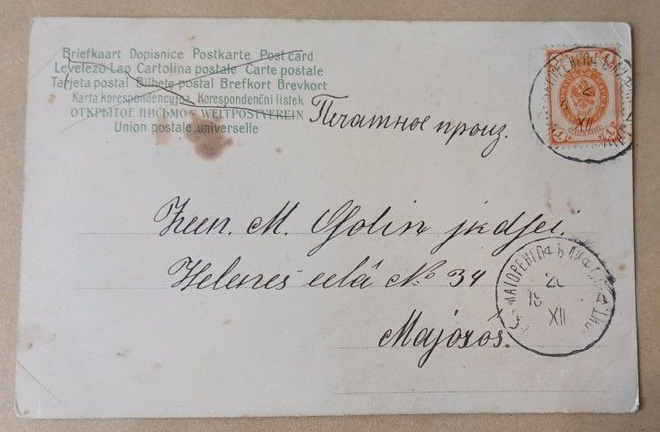 Briefkaart Dopisnice Postkarte Post card
Levelező-Lap Cartolina postale Carte postale
Tarjeta postal Bilhete postal Brefkort Brevkort
Karta korespondencyjna Korespondenční listek
ОТКРЫТОЕ ПИСЬМО WELTPOSTVEREIN
Union postale universelle
Печатное произ.
M. Golin jkdsei.
Helenes eelâ No 34
Majoros.
XII
XII